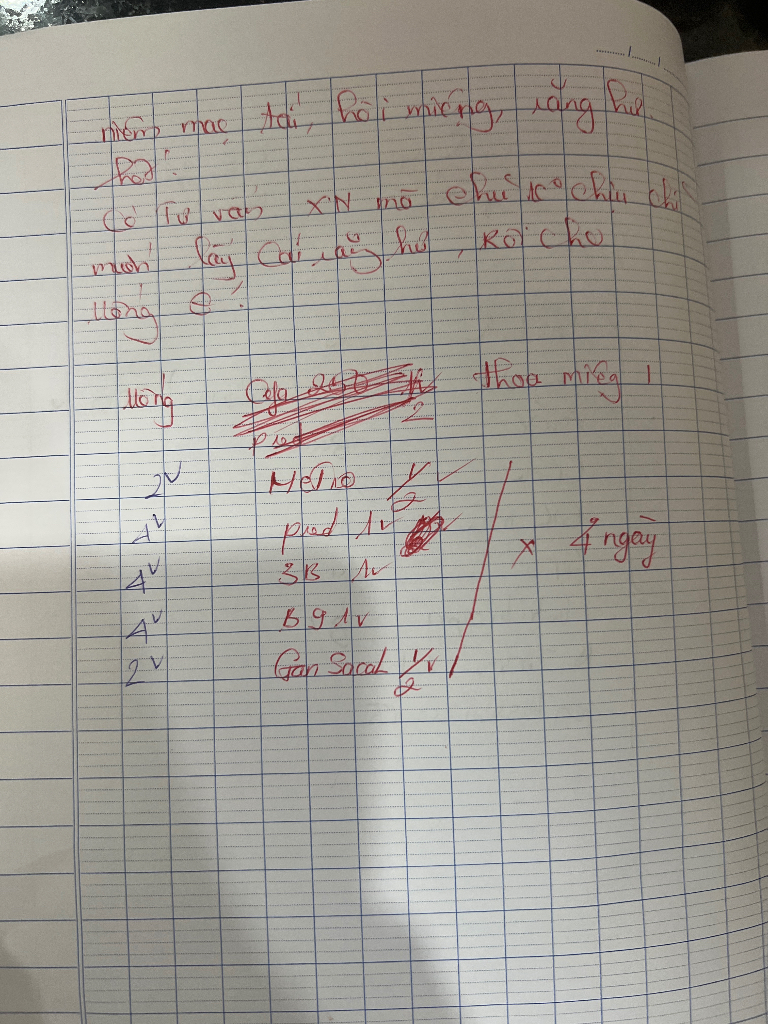 niêm mạc tái, hôi miệng, răng hư
Có Tư vấn XN mà chủ ko chịu chỉ
muốn lấy cái răng hư, rồi cho
uống
uống thoa miệng 1
2v Metro 1/2
4v pred 1v
4v 3B 1v x 4 ngày
4v B9 1v
2v Gan Sacol 1/2v